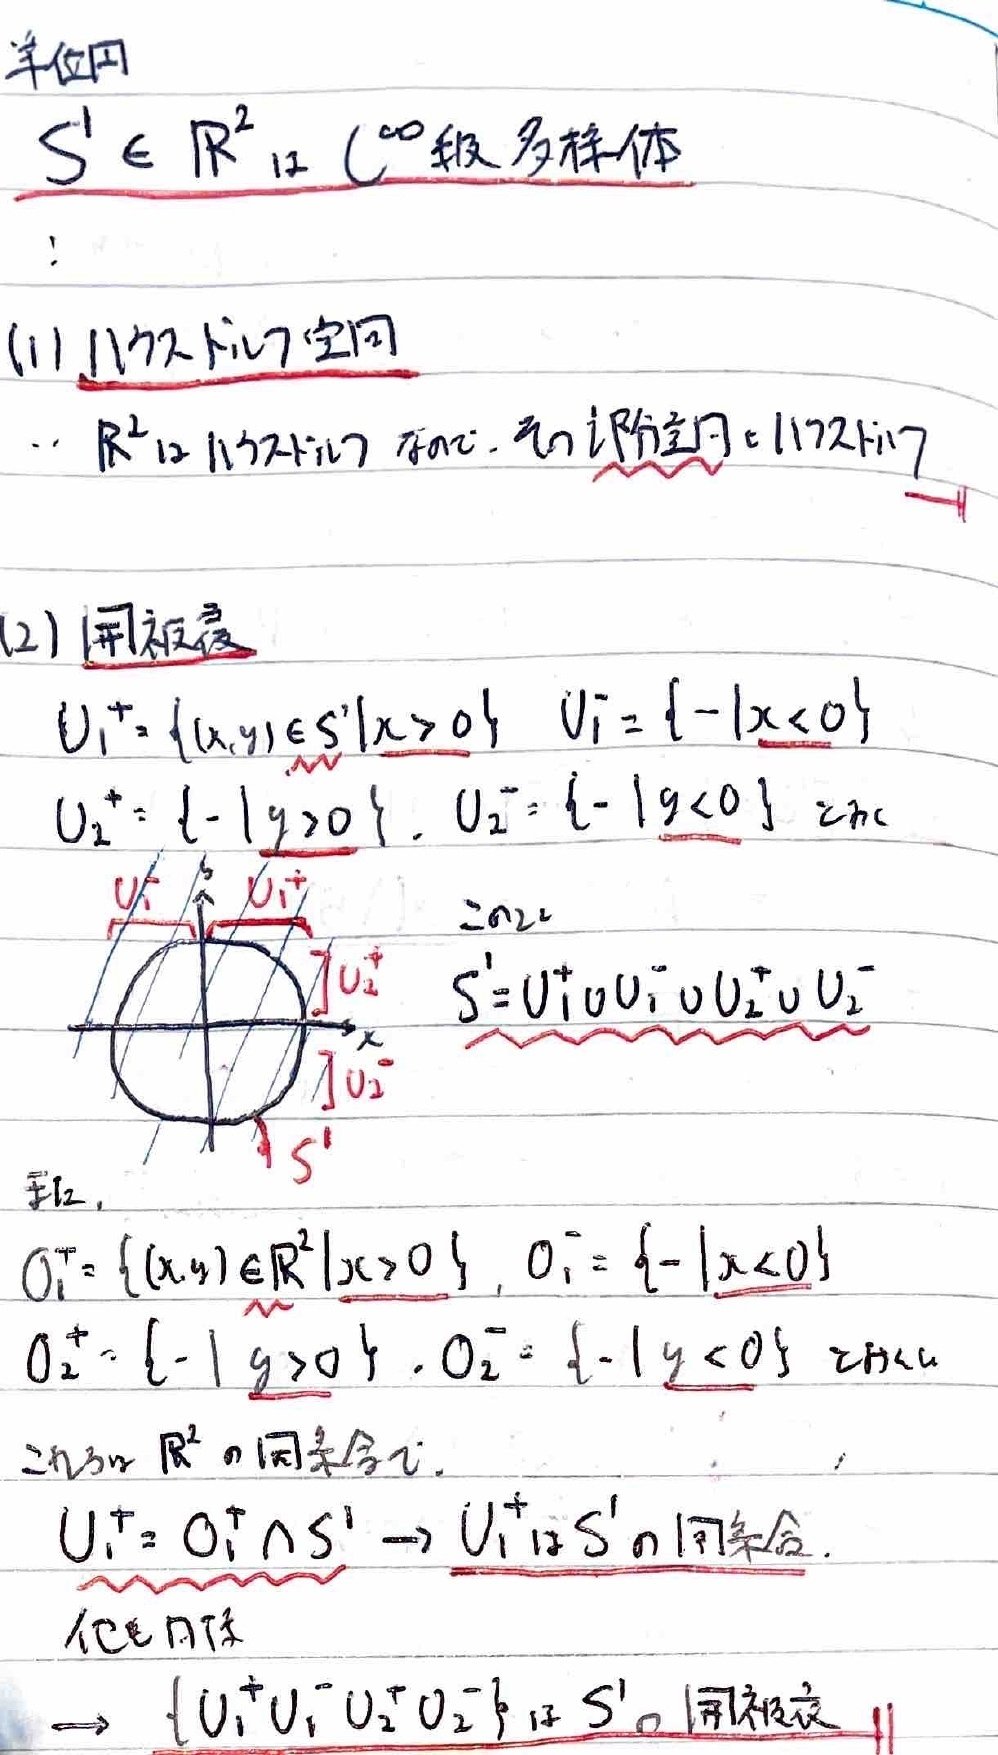 単位円
S¹ ∈ ℝ² は C^∞ 級 多様体
⋮
(1) ハウスドルフ空間
∵ ℝ² は ハウスドルフ なので、その 部分空間もハウスドルフ
(2) 開被覆
U₁⁺ = {(x,y) ∈ S¹ | x > 0} U₁⁻ = {- | x < 0}
U₂⁺ = {- | y > 0}, U₂⁻ = {- | y < 0} とおく
U₁⁻ y U₁⁺
このとき
U₂⁺
S¹ = U₁⁺ ∪ U₁⁻ ∪ U₂⁺ ∪ U₂⁻
x
U₂⁻
S¹
O₁⁺ = {(x,y) ∈ ℝ² | x > 0}, O₁⁻ = {- | x < 0}
O₂⁺ = {- | y > 0}, O₂⁻ = {- | y < 0} とおくと
これらは ℝ² の 開集合で、
U₁⁺ = O₁⁺ ∩ S¹ → U₁⁺ は S¹ の 開集合.
他も同様
→ {U₁⁺ U₁⁻ U₂⁺ U₂⁻} は S¹ の 開被覆